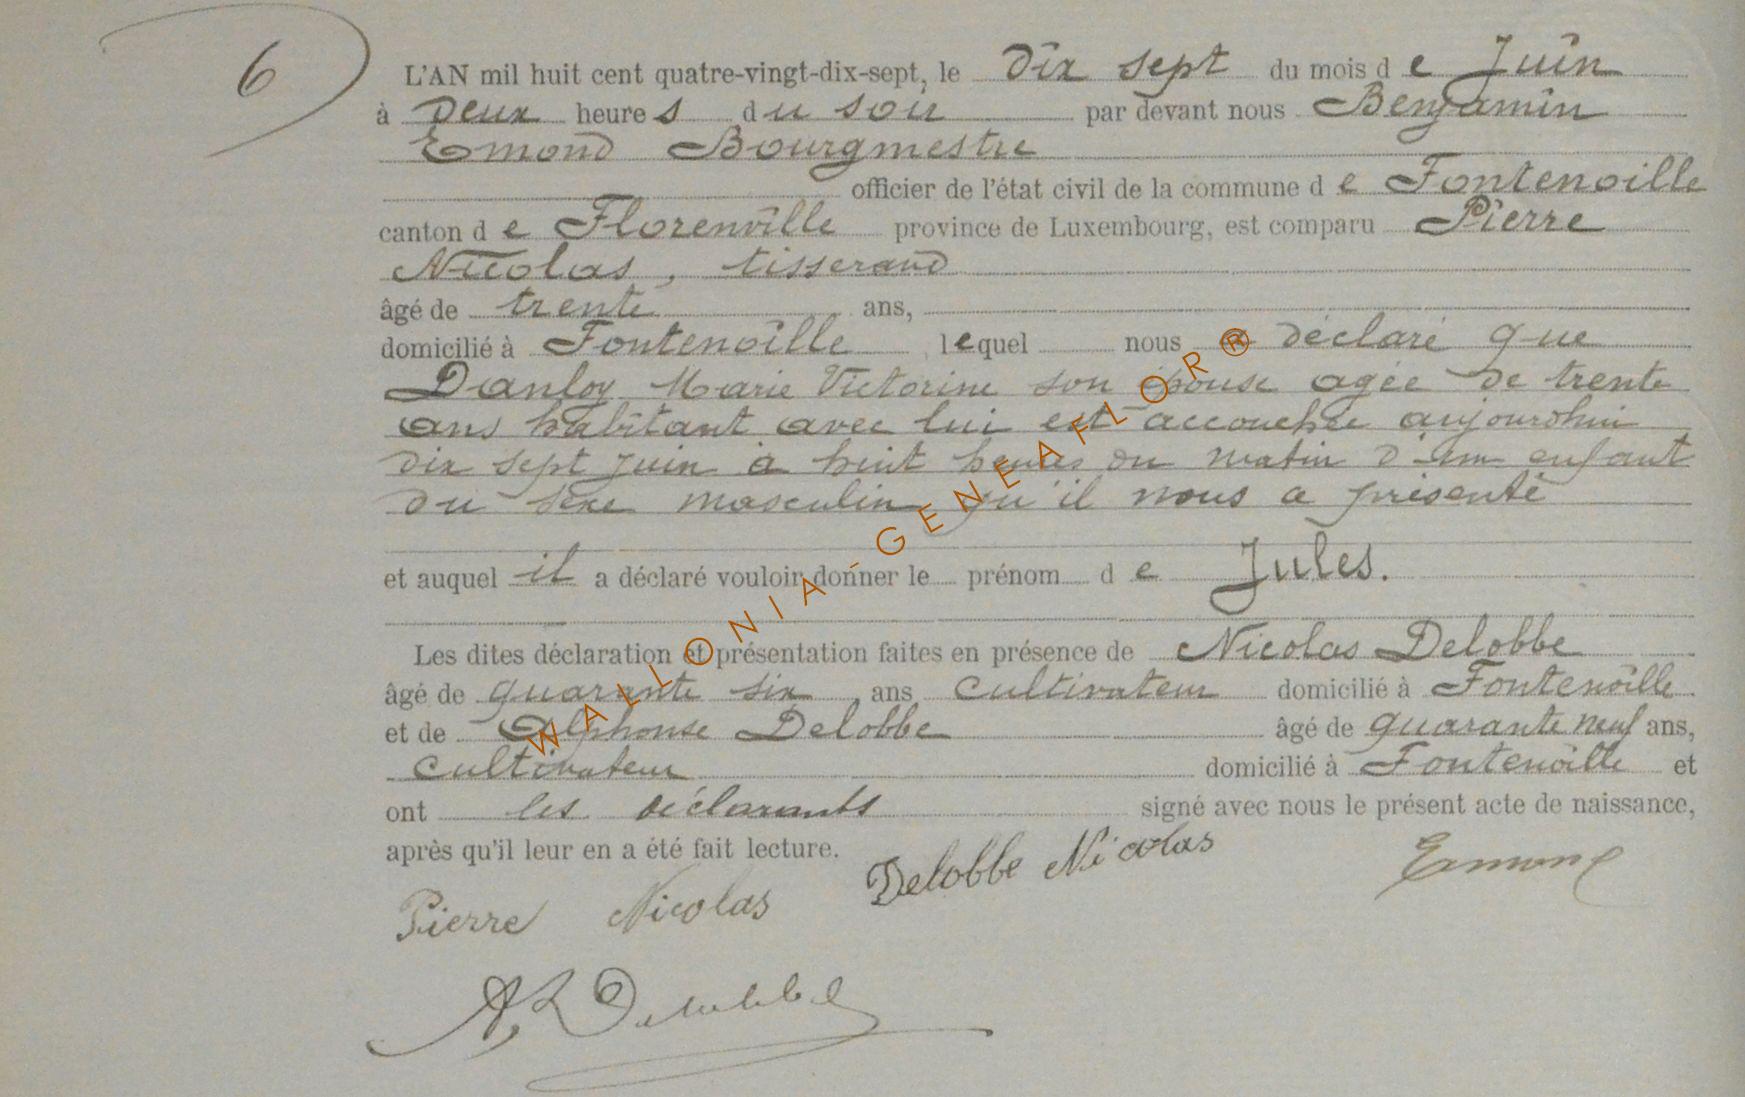 6
L'AN mil huit cent quatre-vingt-dix-sept, le dix sept du mois de Juin
à Deux heures du soir par devant nous Benjamin
Emond Bourgmestre
officier de l'état civil de la commune de Fontenoille
canton de Florenville province de Luxembourg, est comparu Pierre
Nicolas, tisserand
âgé de trente ans,
domicilié à Fontenoille lequel nous a déclaré que
Danloy Marie Victorine son épouse agée de trente
ans habitant avec lui est accouchée aujourdhui
dix sept juin à huit heures du matin d'un enfant
du sexe masculin qu'il nous a présenté
et auquel il a déclaré vouloir donner le prénom de Jules.
Les dites déclaration et présentation faites en présence de Nicolas Delobbe
âgé de quarante six ans cultivateur domicilié à Fontenoille
et de Alphonse Delobbe âgé de quarante neuf ans,
cultivateur domicilié à Fontenoille et
ont les déclarants signé avec nous le présent acte de naissance,
après qu'il leur en a été fait lecture.
Delobbe Nicolas Emond
Pierre Nicolas
A Delobbe
WALLONIA-GENEAFLOR®